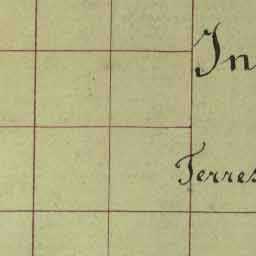 In
Terres